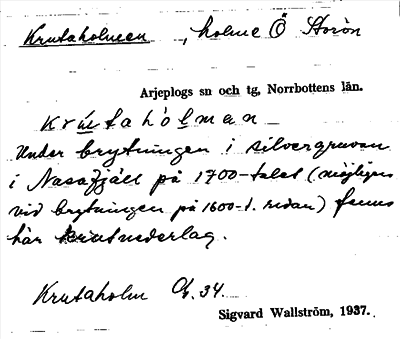 Krutaholmen, holme Ö Storön
Arjeplogs sn och tg, Norrbottens län.
krùtahòlman
Under brytningen i silvergruvan
i Nasafjäll på 1700-talet (möjligen
vid brytningen på 1600-t. redan) fanns
här krutnederlag.
Krutaholm 34.
Sigvard Wallström, 1937.